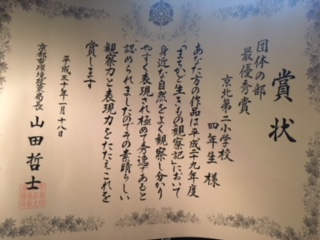 賞状
団体の部
最優秀賞
京北第二小学校
四年生 様
あなた方の作品は平成二十九年度
「まちかど生きもの観察記」において
身近な自然をよく観察し分かり
やすく表現され極めて優秀であると
認められましたのでその素晴らしい
観察力と表現力をたたえこれを
賞します
平成三十年一月十八日
京都市環境政策局長
山田哲士